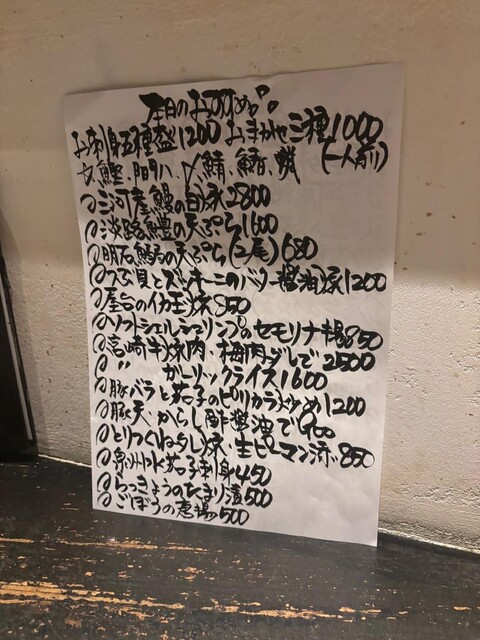 本日のおすすめ。
お刺身五種盛1200 おまかせ三種1000
(一人前)
鰹、〆鯖、
三河産鰻の白焼2800
淡路鱧の天ぷら1600
明石の天ぷら(2尾)680
つぶ貝とズッキーニのバター醤油焼1200
屋台のイカ玉焼850
ソフトシェルシュリンプのセモリナ揚850
宮崎牛焼肉、梅肉ダレで2500
〃 ガーリックライス1600
豚バラと茄子のピリカラ炒め1200
豚天、からし酢醤油で900
とりつくねタレ焼、生ピーマン添850
泉州水茄子刺身450
らっきょうのたまり漬500
ごぼうの唐揚500